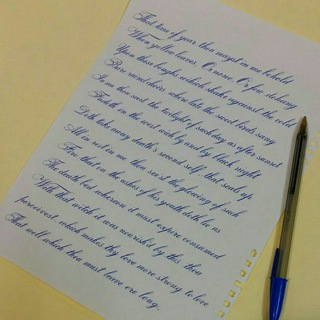 That time of year thou mayst in me behold
When yellow leaves Or none Or few dohang
Upon those boughs which shake against the cold
Bare ruined choirs where late the sweet birds sang
In me thou seest the twilight of suchday as after sunset
Fadeth in the west which by and by black night
Doth take away death's second self, that seals up
All in rest in me thou seest the glowing of such
Fire that on the ashes of his youth doth lie as
The death bed whereon it must expire consumed
With that which it was nourish'd by this thou
perceivest, which makes thy love more strong to love
That well which thou must leave ere long.